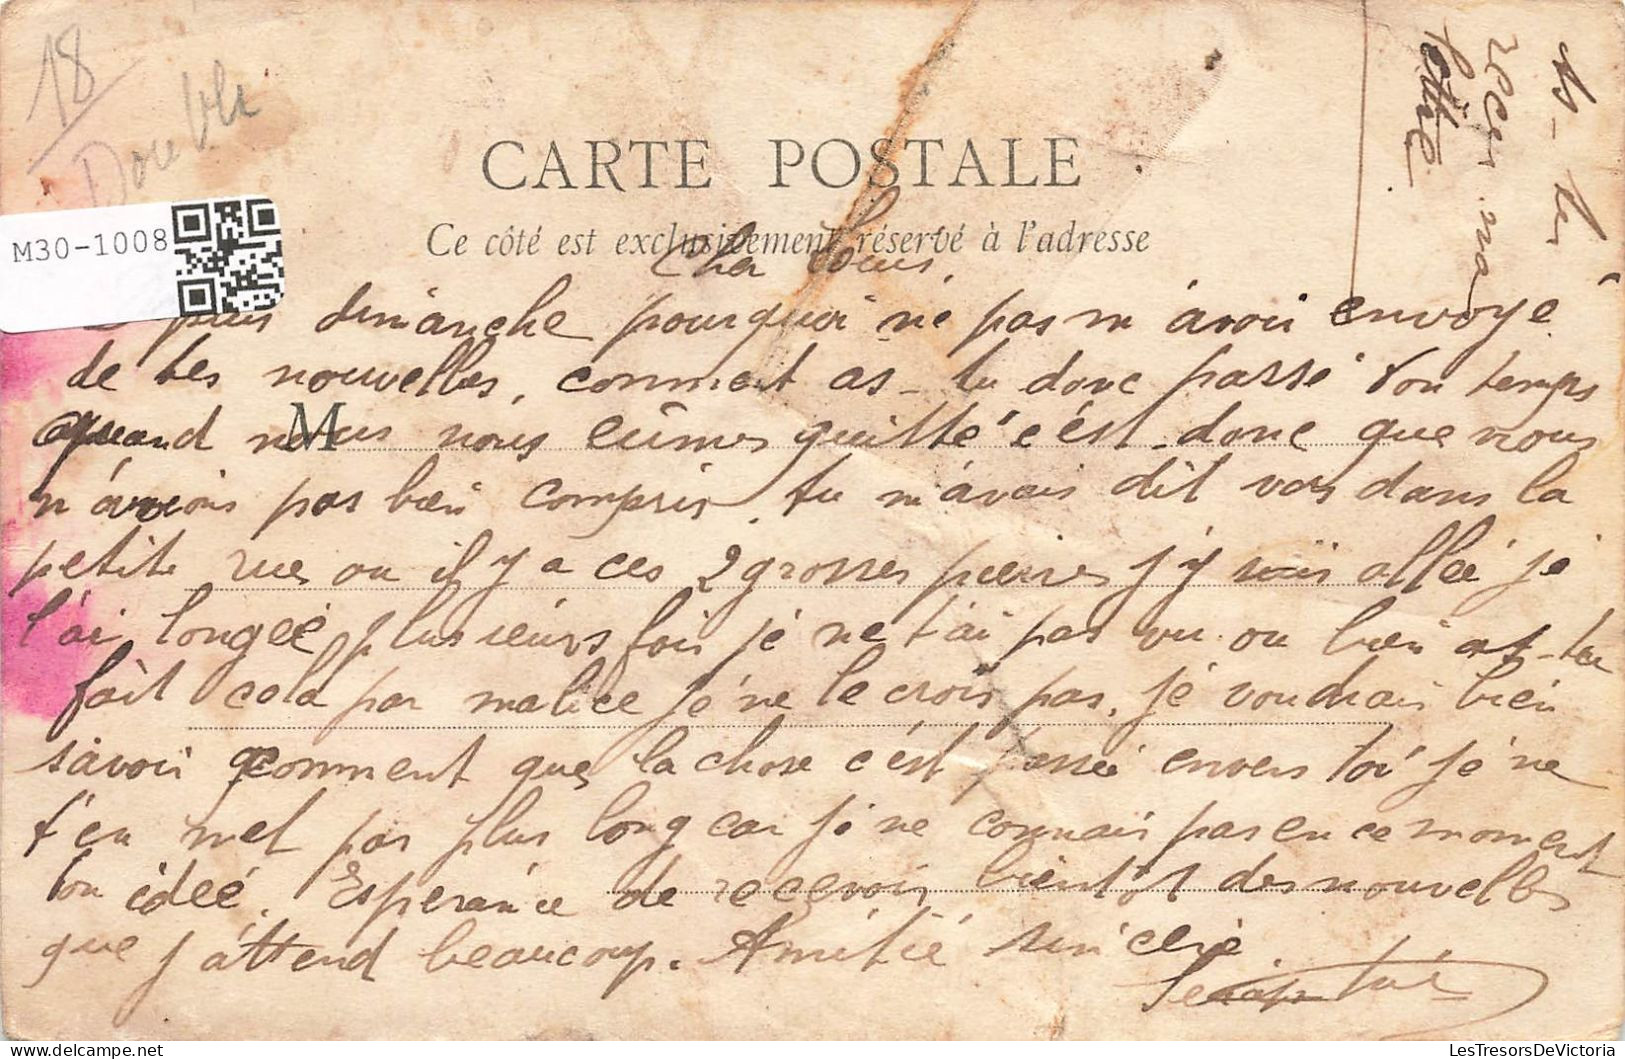 18
Double
M30-1008
CARTE POSTALE
Ce côté est exclusivement réservé à l'adresse
as-tu
reçu ma
lettre
Cher Louis,
puis dimanche pourquoi ne pas m'avoir envoyé
de tes nouvelles, comment as-tu donc passé ton temps
quand nous nous eûmes quitté c'est donc que nous
M
n'avions pas bien compris, tu m'avais dit vers dans la
petite rue ou il y a ces 2 grosses pierres j'y suis allée je
l'ai longée plusieurs fois je ne t'ai pas vu ou bien as-tu
fait cela par malice je ne le crois pas, je voudrais bien
savoir comment que la chose c'est passée envers toi je ne
t'en met pas plus long car je ne connais pas en ce moment
ton ideé. Espérance de recevoir bientôt des nouvelles
que j'attend beaucoup. Amitié sincère.
LesTresorsDeVictoria